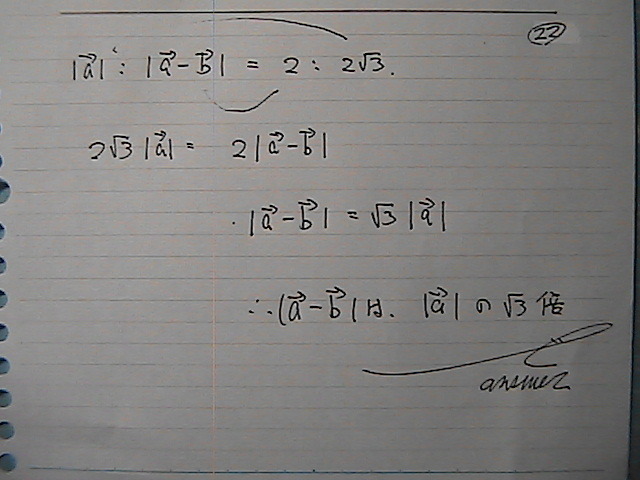 22
|a⃗| : |a⃗-b⃗| = 2 : 2√3.
2√3 |a⃗| = 2|a⃗-b⃗|
|a⃗-b⃗| = √3 |a⃗|
∴ |a⃗-b⃗| は、 |a⃗| の √3 倍
answer